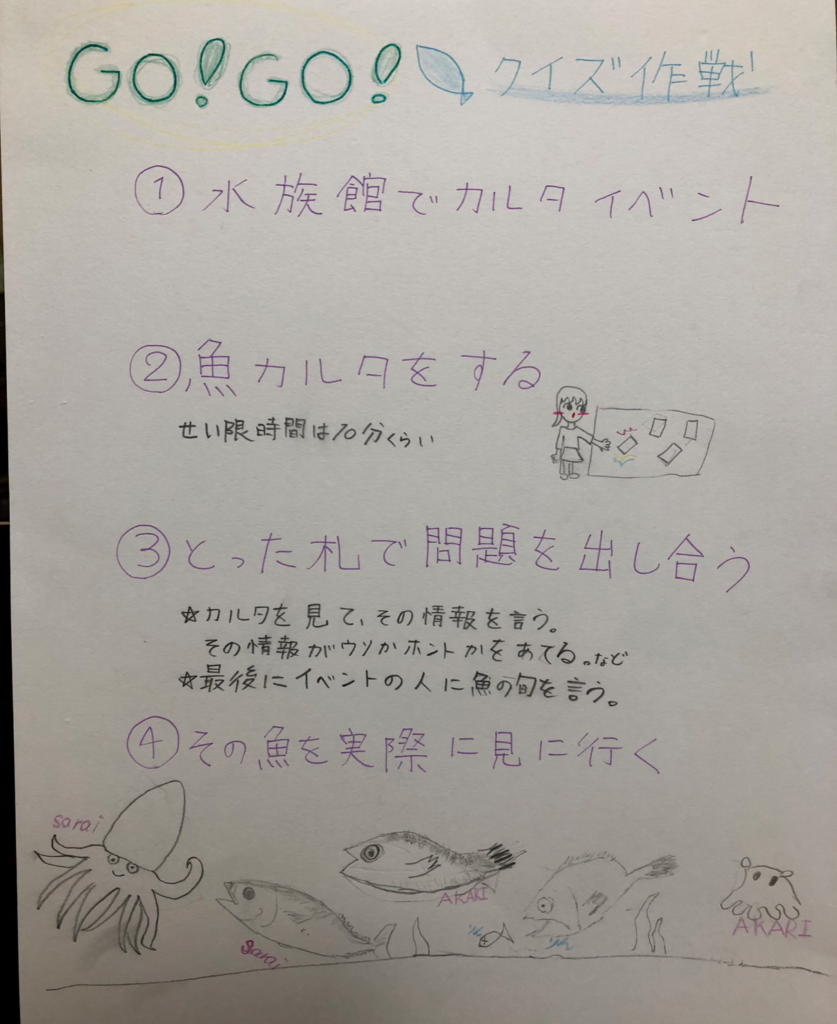 GO!GO! クイズ作戦
① 水族館でカルタイベント
② 魚カルタをする
せい限時間は10分くらい
③ とった札で問題を出し合う
☆カルタを見て、その情報を言う。
その情報がウソかホントかをあてる。など
☆最後にイベントの人に魚の旬を言う。
④ その魚を実際に見に行く
sarai
AKARI
sarai
AKARI